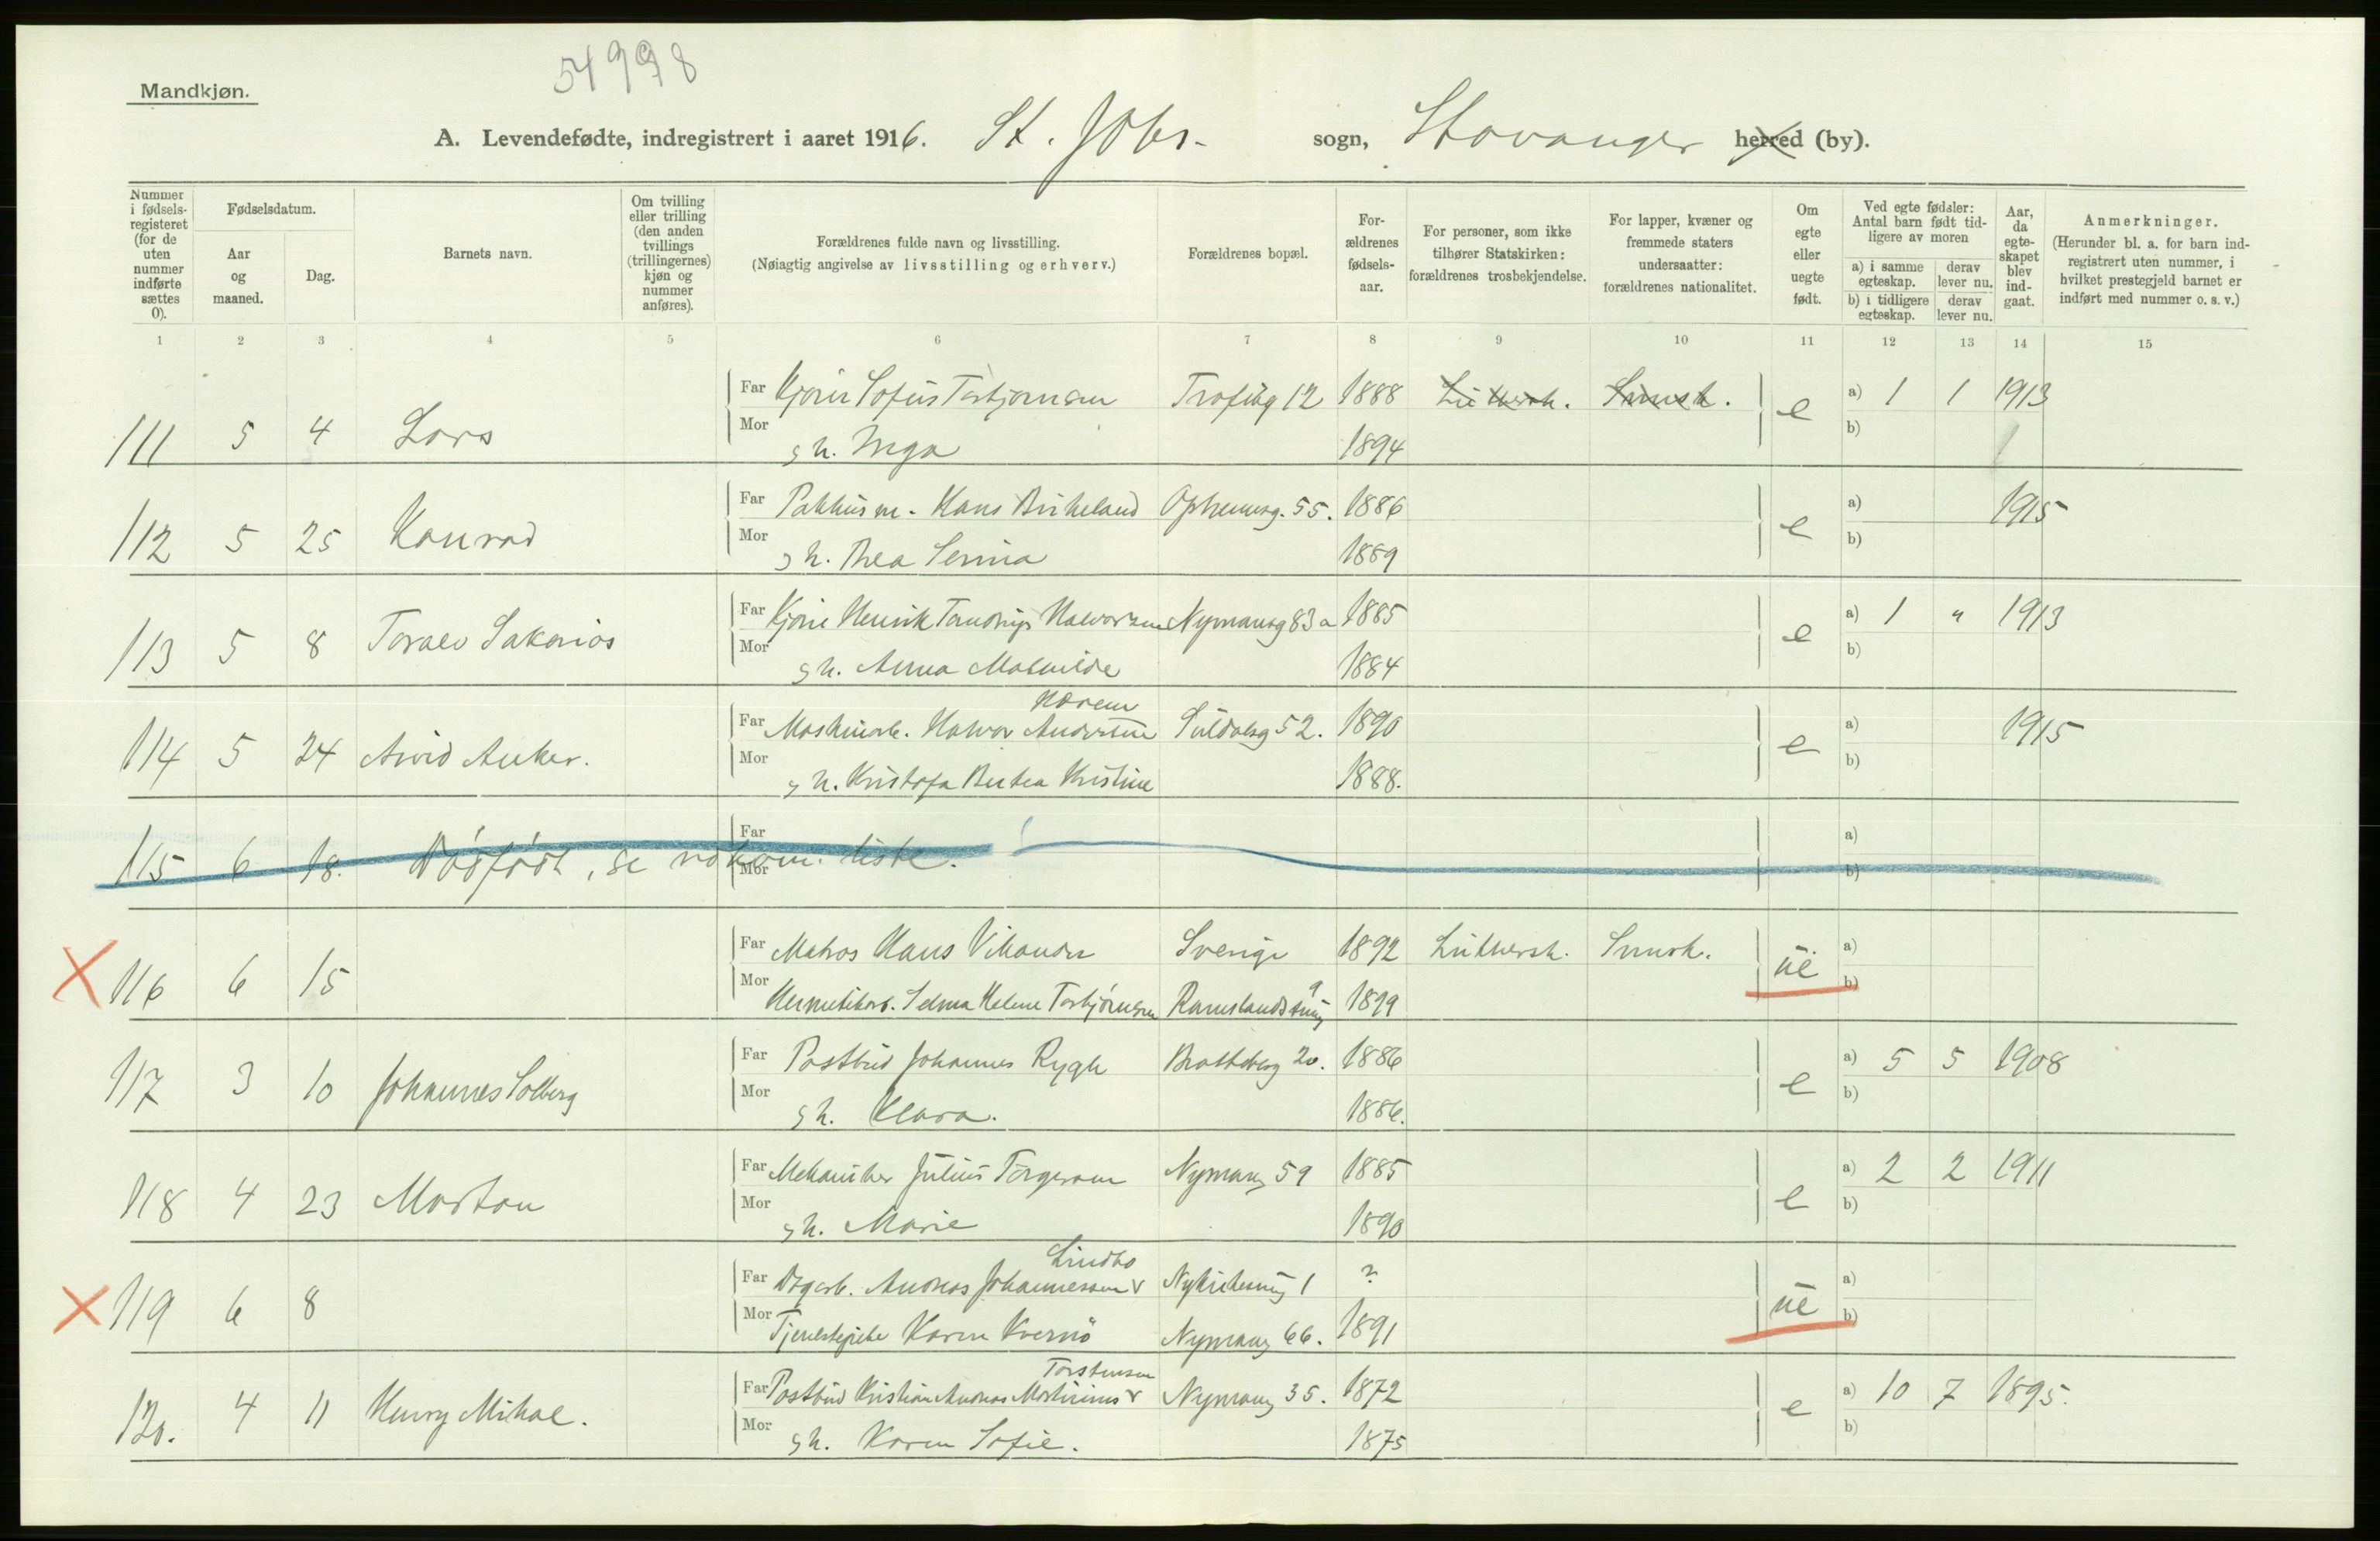 54998
Mandkjøn.
A. Levendefødte, indregistrert i aaret 1916. St. Johs. sogn, Stavanger herred (by).
Nummer i fødselsregisteret (for de uten nummer indførte sættes 0).
Fødselsdatum.
Aar og maaned.
Dag.
Barnets navn.
Om tvilling eller trilling (den anden tvillings (trillingernes) kjøn og nummer anføres).
Forældrenes fulde navn og livsstilling.
(Nøiagtig angivelse av livsstilling og erhverv.)
Forældrenes bopæl.
For-ældrenes fødsels-aar.
For personer, som ikke tilhører Statskirken: forældrenes trosbekjendelse.
For lapper, kvæner og fremmede staters undersaatter: forældrenes nationalitet.
Om egte eller uegte født.
Ved egte fødsler: Antal barn født tidligere av moren
a) i samme egteskap.
derav lever nu.
b) i tidligere egteskap.
derav lever nu.
Aar, da egteskapet blev indgaat.
Anmerkninger.
(Herunder bl. a. for barn indregistrert uten nummer, i hvilket prestegjeld barnet er indført med nummer o. s. v.)
1 2 3 4 5 6 7 8 9 10 11 12 13 14 15
Far Kjører Sofus Torbjørnsen 1888 Luthersk. Svensk. a) 1 1 1913
111 5 4 Lars e
Mor g h. Inga 1894 b)
Far Pakhusm. Hans Birkeland 55. 1886 a) 1915
112 5 25 Konrad e
Mor g h. Thea Serina 1889 b)
Far Henrik Halvorsen Nymansg 83 a 1885 a) 1 " 1913
113 5 8 Toralv Sakarias e
Mor g h. Anna Mathilde 1884 b)
Far Maskinarb. Halvor Andersen Hörem Suldalsg 52. 1890 a) 1915
114 5 24 Arvid Anker. e
Mor g h. Kristofa Bertea Kristine 1888. b)
Far a)
115 6 18. Dødfødt, se vedkom. liste.
Mor b)
Far Matros Hans Vikander Sverige 1892 Luthersk. Svensk. a)
X 116 6 15 ue
Mor Hermetikarb. Selma Helene Torbjørnsen 9 1899 b)
Far Postbud Johannes Rygh 20. 1886 a) 5 5 1908
117 3 10 Johannes Solberg e
Mor g h. Klara. 1886. b)
Far Mekaniker Julius Torgersen Nymansg 59 1885 a) 2 2 1911
118 4 23 Morton e
Mor g h. Marie 1890 b)
Far Dagarb. Andreas Johannessen Lindbo 1 ? a)
X 119 6 8 ue
Mor Tjenestepike Karen Nymansg 66. 1891 b)
Far Postbud Kristian Andreas Martinius Torstensen Nymansg 35. 1872 a) 10 7 1895.
120. 4 11 Henry Mikal. e
Mor g h. Karen Sofie. 1875 b)